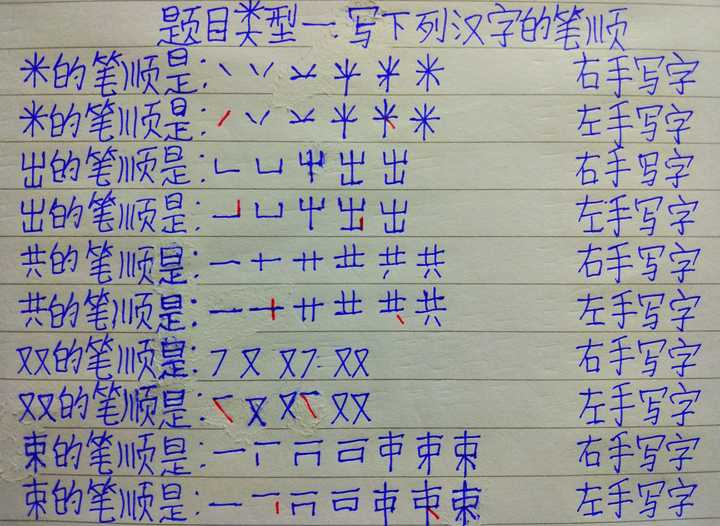 题目类型一.写下列汉字的笔顺
米的笔顺是: 丶 丷 米 右手写字
米的笔顺是: 丷 米 左手写字
出的笔顺是: 凵 屮 出 出 右手写字
出的笔顺是: 凵 屮 出 出 左手写字
共的笔顺是: 一 十 艹 龷 共 右手写字
共的笔顺是: 一 十 艹 龷 共 左手写字
双的笔顺是: フ 又 双 右手写字
双的笔顺是: 又 双 左手写字
束的笔顺是: 一 束 右手写字
束的笔顺是: 一 束 左手写字